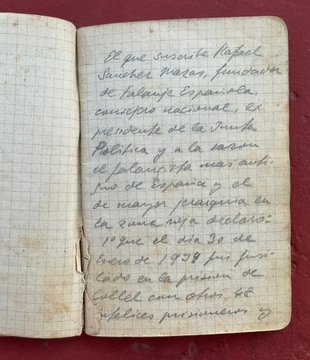 El que suscribe Rafael
Sánchez Mazas, fundador
de Falange Española,
consejero nacional, ex
presidente de la Junta
Política y a la sazón
el falangista más anti-
guo de España y el
de mayor jerarquía en
la zona roja declaro:
1º que el día 30 de
Enero de 1939 fui fusi-
lado en la prisión de
Collel con otros 48
infelices prisioneros y